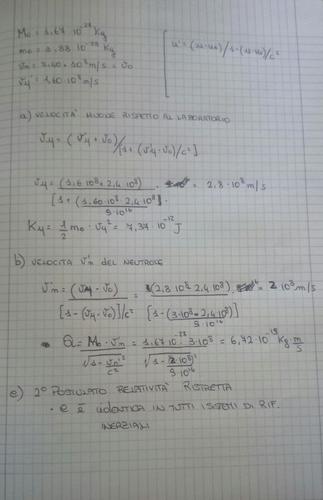 M₀ = 1,67 10⁻²⁸ Kg
m₀ = 1,88 10⁻²⁸ Kg
vn = 2,40 · 10⁸ m/s = v₀
v'μ = 1,60 · 10⁸ m/s
u' = (u - u₀) / 1 - (u · u₀)/c²
a) VELOCITA' MUONE RISPETTO AL LABORATORIO
vμ = (v'μ + v₀) / [1 + (v'μ · v₀)/c²]
vμ = (1,6 10⁸ + 2,4 10⁸) / [1 + (1,60 10⁸ · 2,4 10⁸) / 9 · 10¹⁶] = 2,8 · 10⁸ m/s
Kμ = 1/2 m₀ · vμ² = 7,37 · 10⁻¹² J
b) VELOCITA v'n DEL NEUTRONE
v'n = (vμ - v₀) / [1 - (vμ · v₀)]/c² = (2,8 10⁸ - 2,4 10⁸) / [1 - (3 · 10⁸ · 2,4 10⁸) / 9 · 10¹⁶] = 2 10⁸ m/s
Q = M₀ · v'n / √1 - v'n²/c² = 1,67 10⁻²⁸ · 3 · 10⁸ / √1 - (2 · 10⁸)² / 9 · 10¹⁶ = 6,72 · 10⁻¹⁹ Kg · m/s
c) 2° POSTULATO RELATIVITA' RISTRETTA
· C È IDENTICA IN TUTTI I SISTEMI DI RIF.
INERZIALI